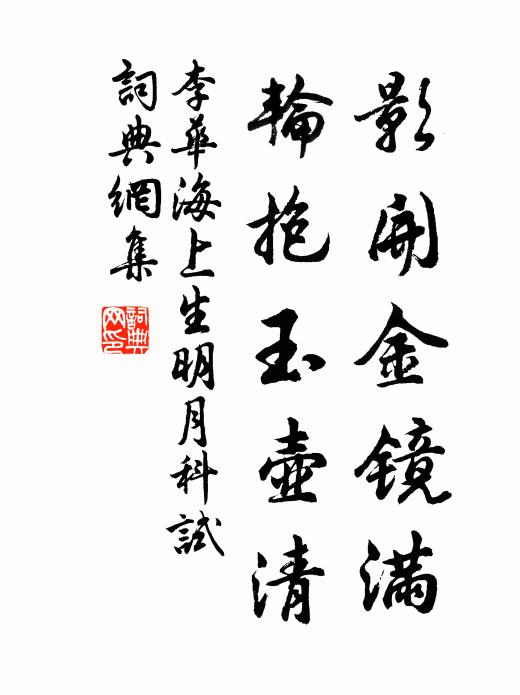 影開金鏡满
輪抱玉壺清
李華海上生明月科試
詞典網集
詞典
网印